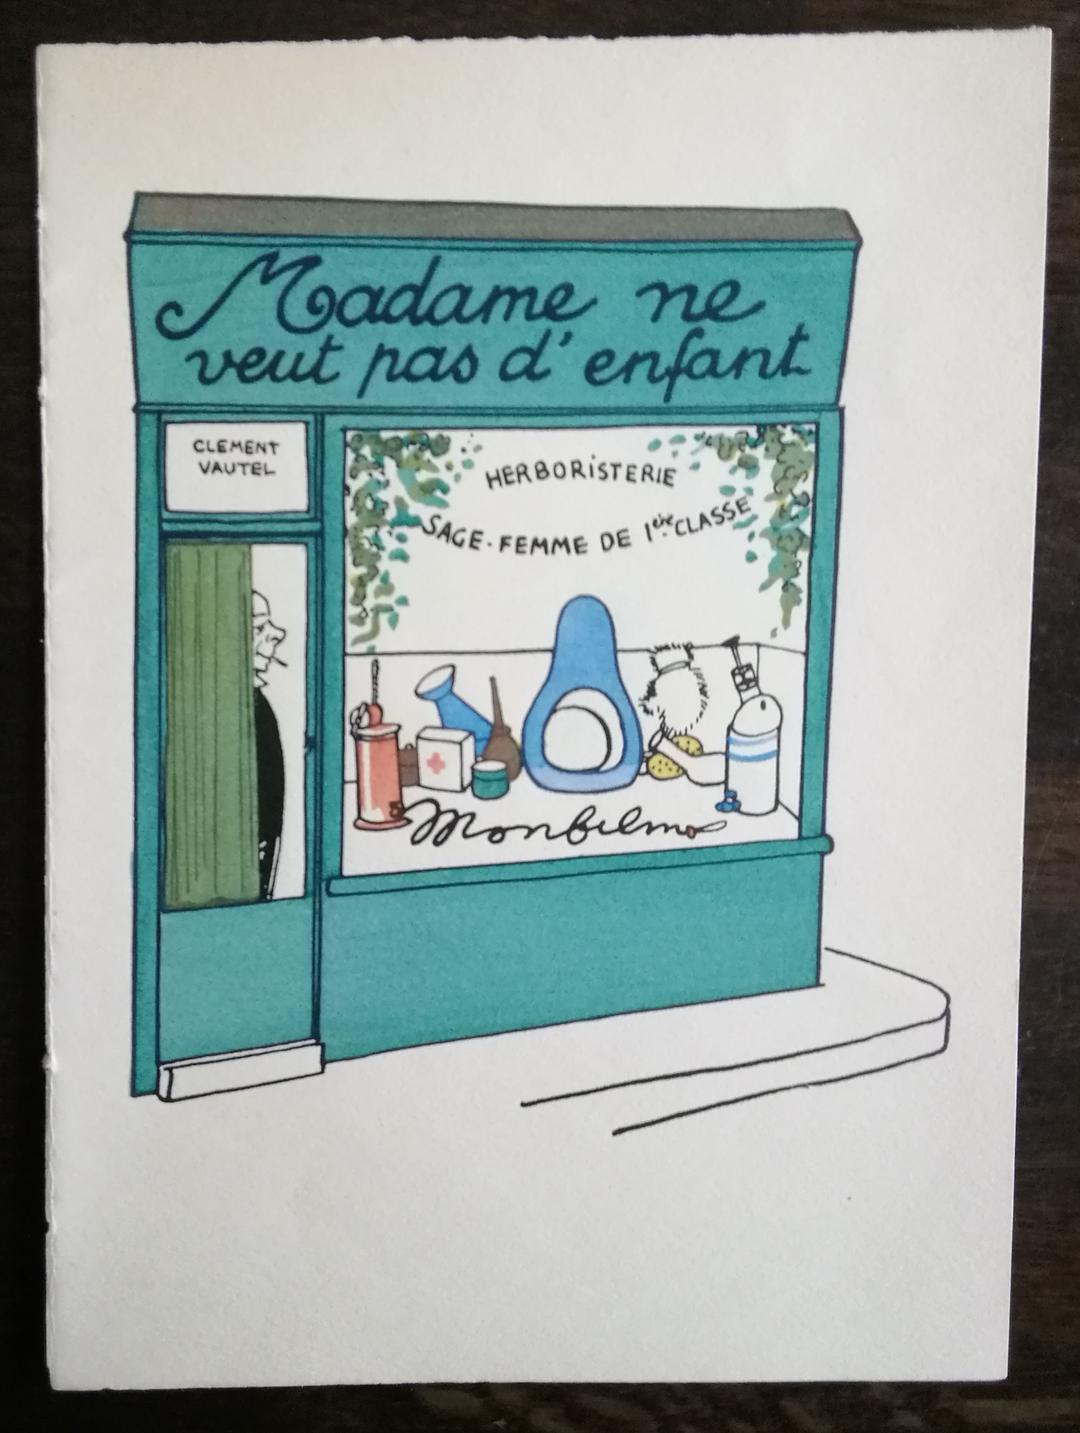 Madame ne
veut pas d'enfant
CLEMENT
VAUTEL
HERBORISTERIE
SAGE-FEMME DE 1ère CLASSE